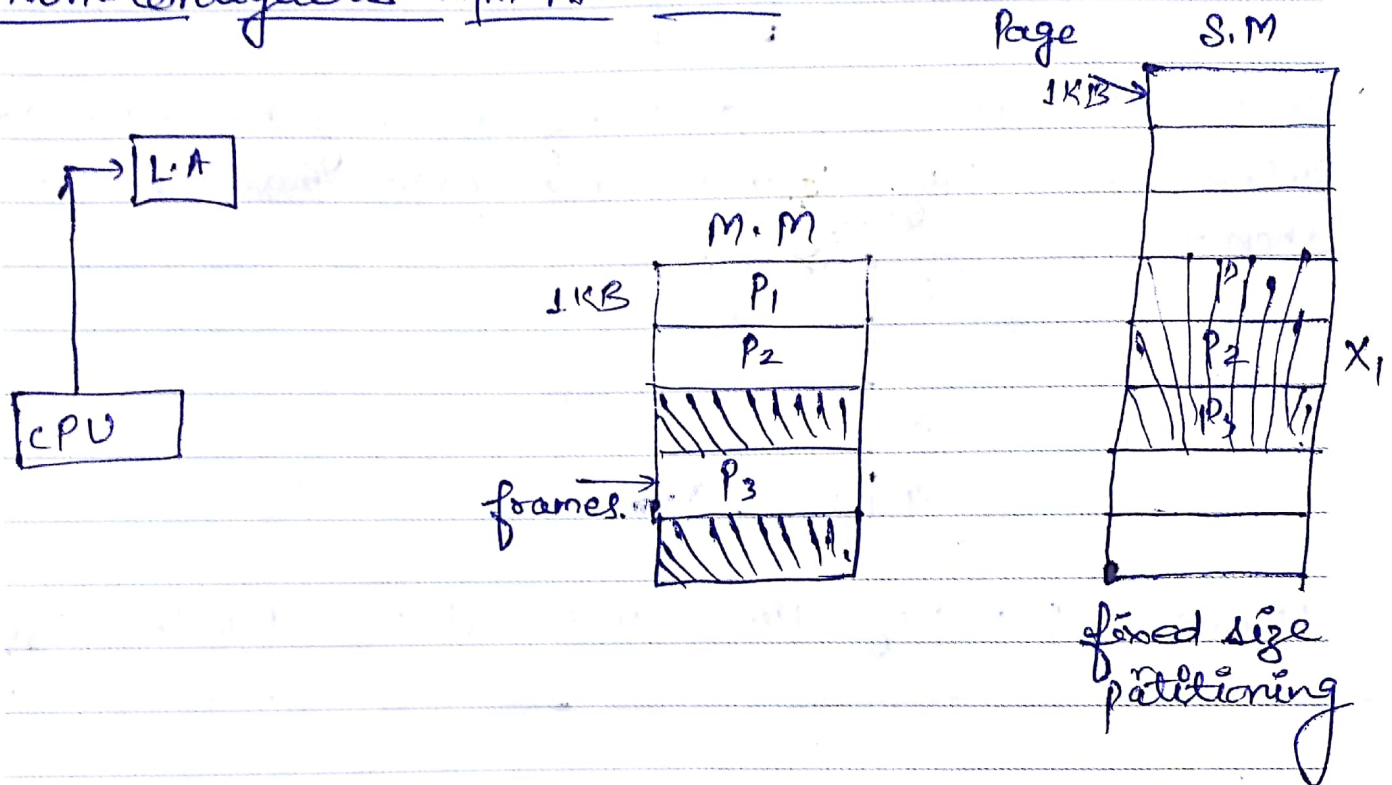 Page S.M
1KB
L.A
M.M
1KB P1
P2
CPU
frames. P3
P
P2 X1
P3
fixed size
partitioning